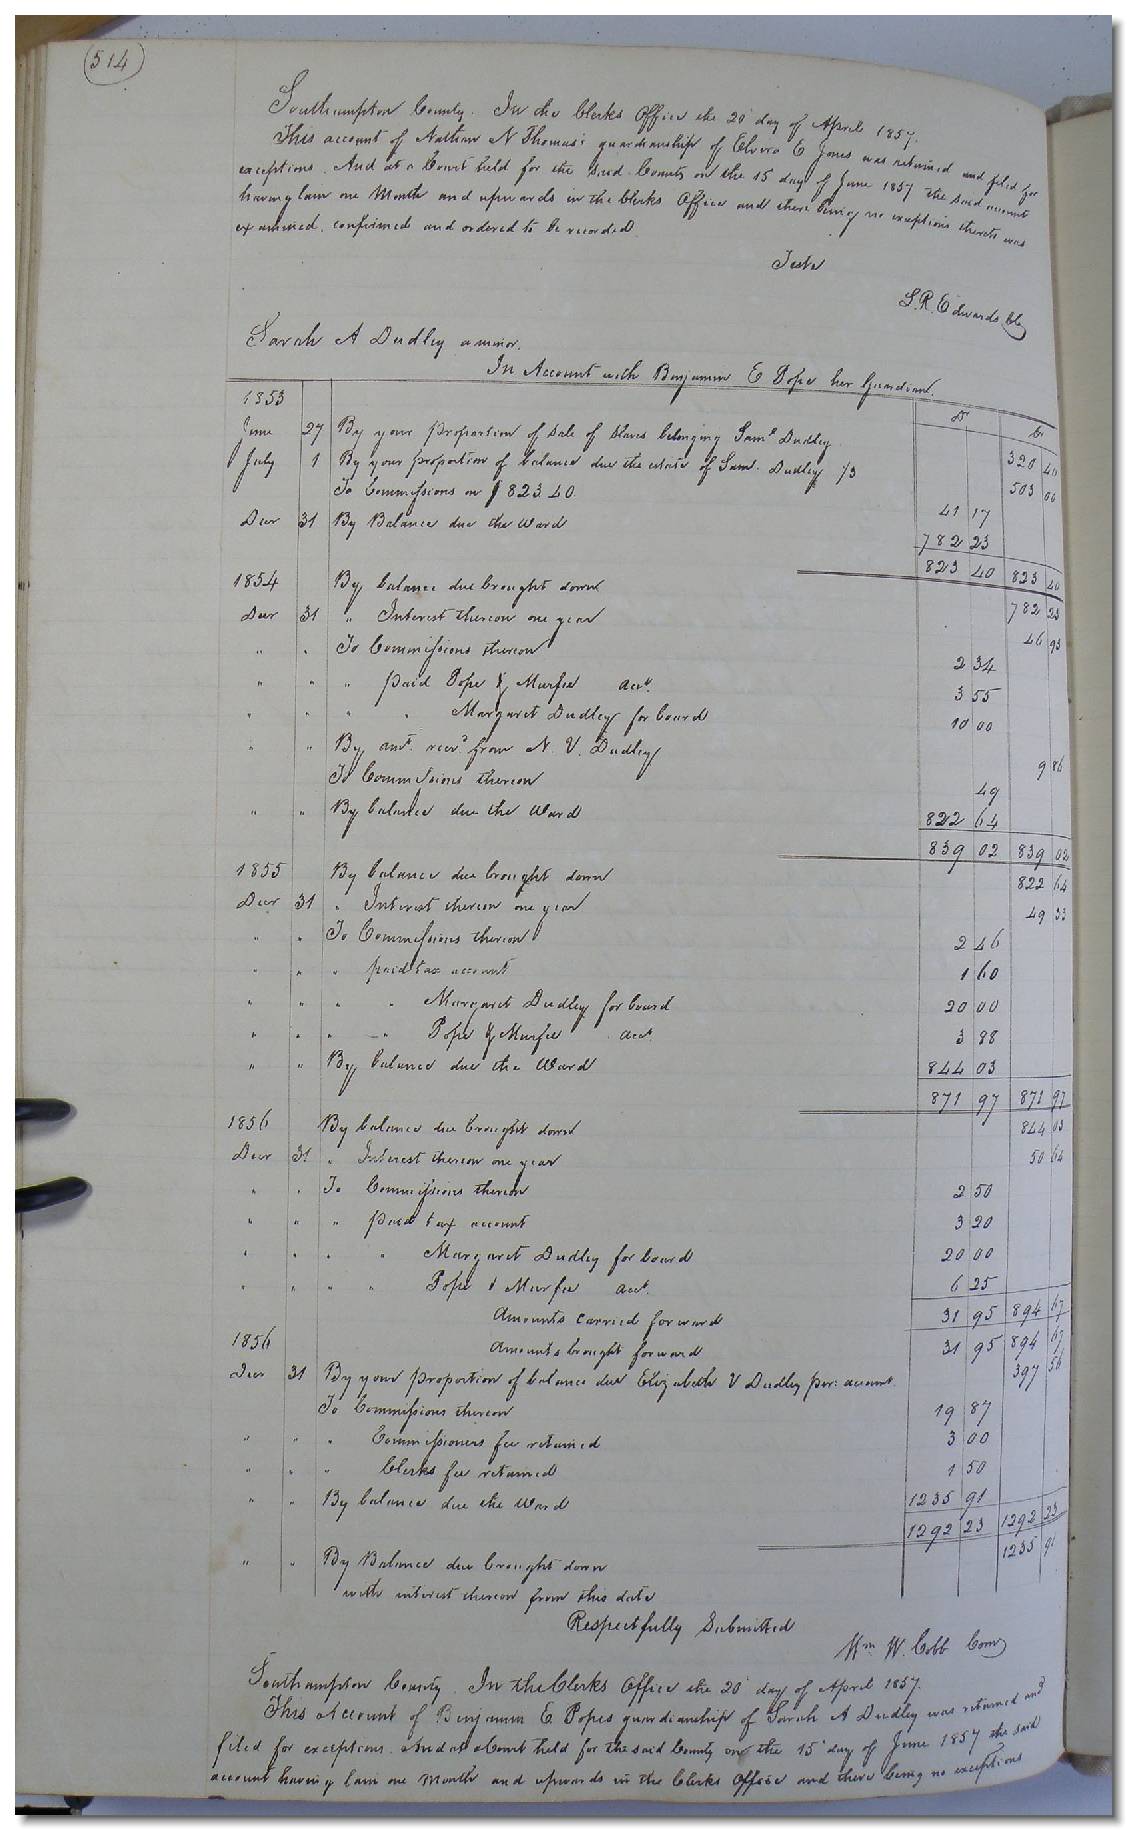 514
Southampton County. In the Clerks Office the 20 day of April 1857.
This account of Nathan N Thomas's guardianship of Elvira E Jones was returned and filed for
exceptions. And at a Court held for the said County on the 15 day of June 1857 the said account
having lain one Month and upwards in the Clerks Office and there being no exceptions thereto was
examined, confirmed and ordered to be recorded
Teste
L.R. Edwards Clk
Sarah A Dudley a minor.
In Account with Benjamin E Pope her Guardian.
1853 Dr Cr
June 27 By your proportion of sale of slaves belonging Saml Dudley 320 40
July 1 By your proportion of balance due the estate of Saml. Dudley /3 503 00
To Commissions on $823.40. 41 17
Decr 31 By Balance due the Ward 782 23
823 40 823 40
1854 By balance due brought down 782 23
Decr 31 " Interest thereon one year 46 93
" " To Commissions thereon 2 34
" " " paid Pope & Murfee acct. 3 55
" " " " Margaret Dudley for board 10 00
" " By amt. recd. from N. V. Dudley 9 86
To Commissions thereon 49
" " By balance due the Ward 822 64
839 02 839 02
1855 By balance due brought down 822 64
Decr 31 " Interest thereon one year 49 33
" " To Commissions thereon 2 46
" " " paid tax account 1 60
" " " " Margaret Dudley for board 20 00
" " " " Pope & Murfee acct. 3 88
" " By balance due the Ward 844 03
871 97 871 97
1856 By balance due brought down 844 03
Decr 31 " Interest thereon one year 50 64
" " To Commissions thereon 2 50
" " " paid tax account 3 20
" " " " Margaret Dudley for board 20 00
" " " " Pope & Murfee acct. 6 25
Amounts carried forward 31 95 894 67
1856 Amounts brought forward 31 95 894 67
Decr 31 By your proportion of balance due Elizabeth V Dudley per: account 397 56
To Commissions thereon 19 87
" " " Commissioners fee retained 3 00
" " " Clerks fee retained 1 50
" " By balance due the Ward 1235 91
1292 23 1292 23
" " By Balance due brought down 1235 91
with interest thereon from this date
Respectfully Submitted
Wm W. Cobb Comr
Southampton County. In the Clerks Office the 20 day of April 1857.
This Account of Benjamin E. Popes guardianship of Sarah A Dudley was returned and
filed for exceptions. And at a Court held for the said County on the 15 day of June 1857 the said
account having lain one Month and upwards in the Clerks Office and there being no exceptions